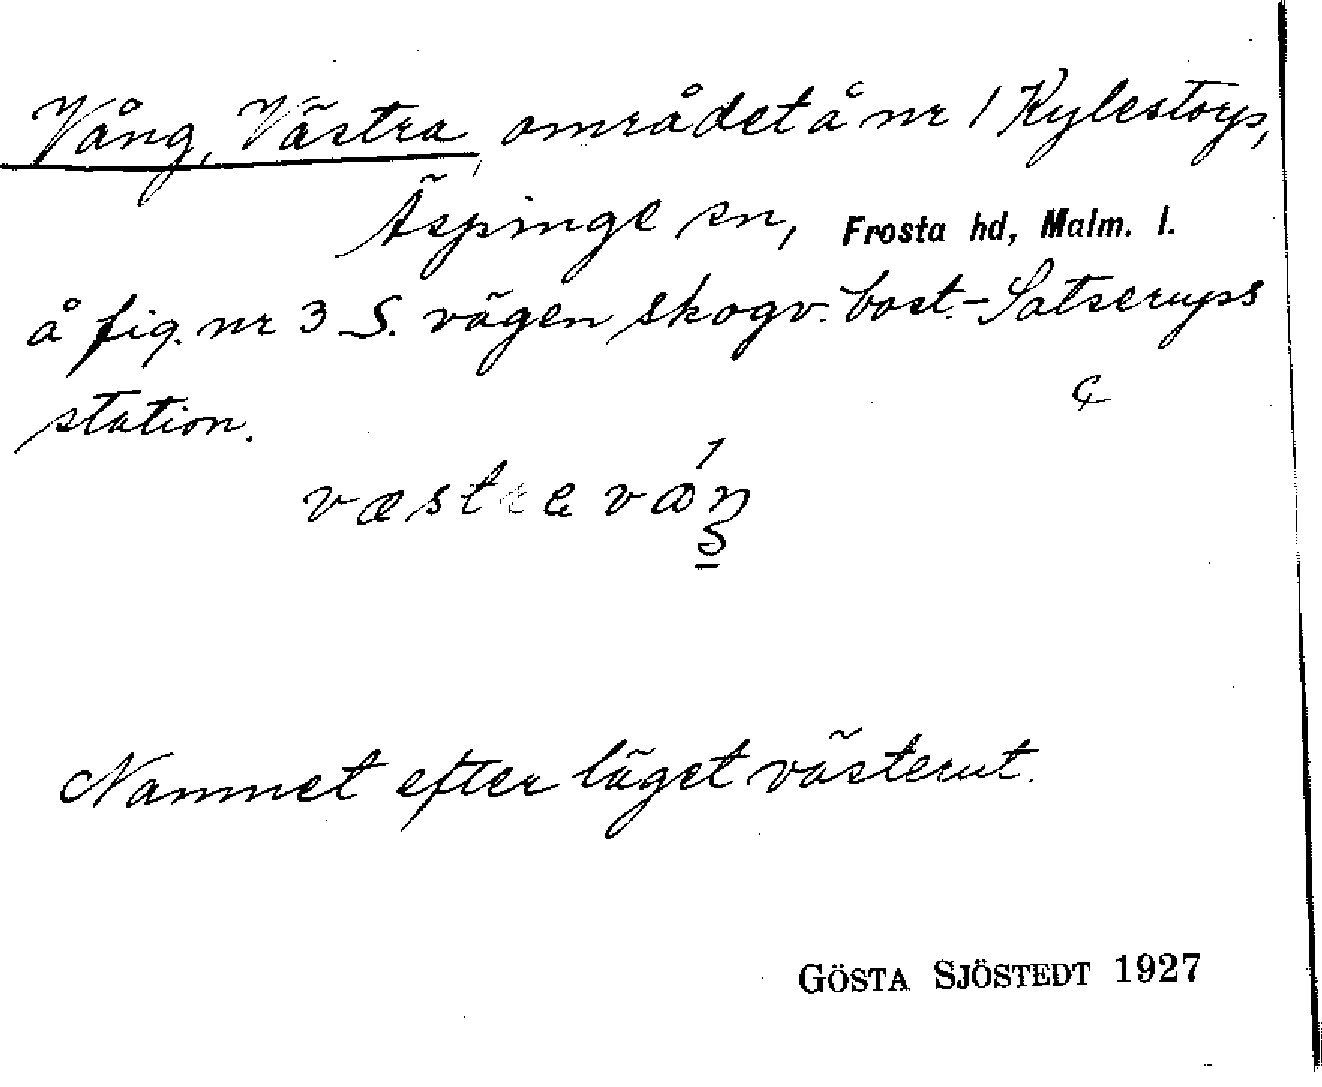 Vång, Västra, området å nr 1 Kylestorp,
Äspinge sn, Frosta hd, Malm. l.
å fig. nr 3 S. vägen skogv. bost.-Satserups
station.
væstrɐ váŋ
Namnet efter läget västerut.
GÖSTA SJÖSTEDT 1927